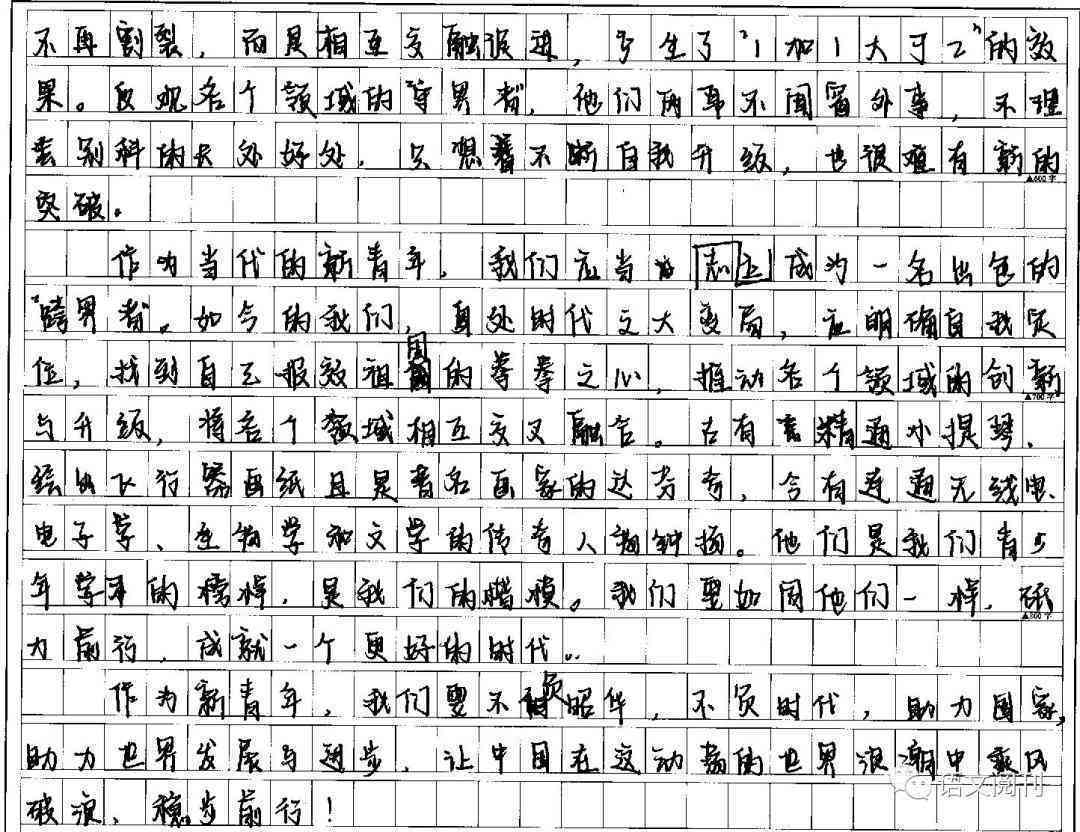 不再割裂，而是相互交融促进，产生了“1加1大于2”的效
果。反观各个领域的“守界者”，他们两耳不闻窗外事，不理
会别科的长处好处，只想着不断自我升级，也很难有新的
▲600字
突破。
作为当代的新青年，我们应当志立成为一名出色的
“跨界者”。如今的我们，身处时代之大变局，应明确自我定
位，找到自己报效祖国的拳拳之心，推动各个领域的创新
▲700字
与升级，将各个领域相互交叉融合。古有精通小提琴、
绘出飞行器画纸且是著名画家的达芬奇，今有连通无线电、
电子学、生物学和文学的传奇人物钟扬。他们是我们青少
年学习的榜样，是我们的楷模。我们要如同他们一样，砥
▲800字
力前行，成就一个更好的时代。
作为新青年，我们要不负昭华，不负时代，助力国家，
助力世界发展与进步，让中国在这动荡的世界浪潮中乘风
破浪，稳步前行！
语文阅刊